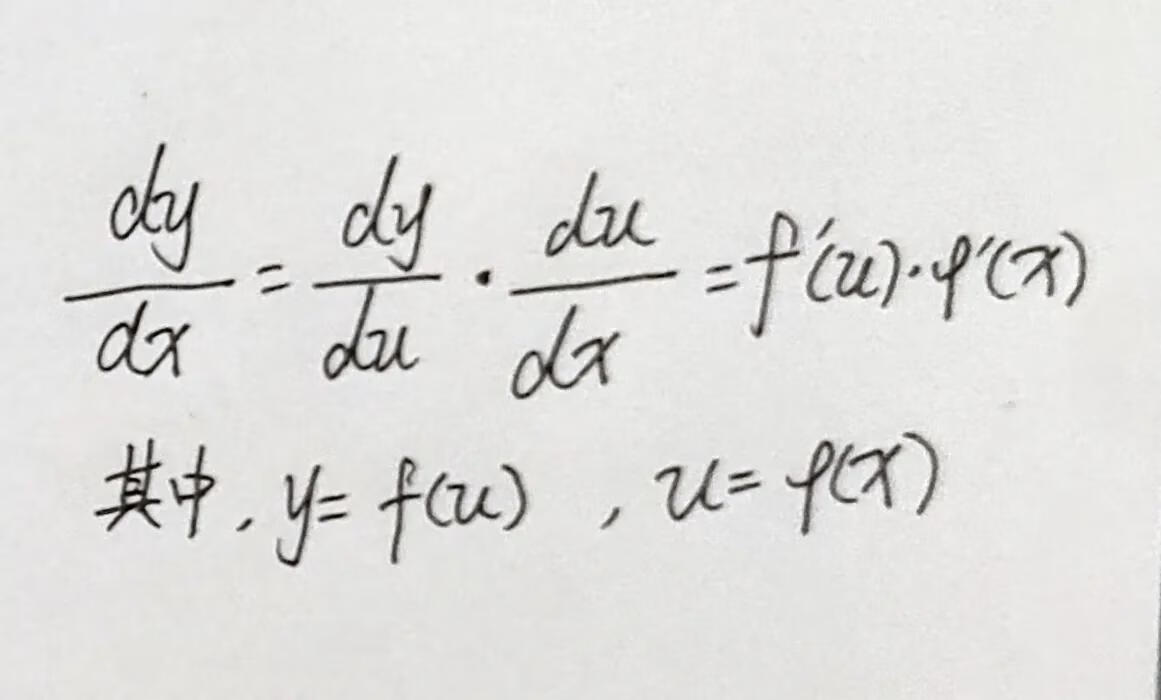 dy/dx = dy/du · du/dx = f′(u)·φ′(x)
其中, y = f(u) , u = φ(x)